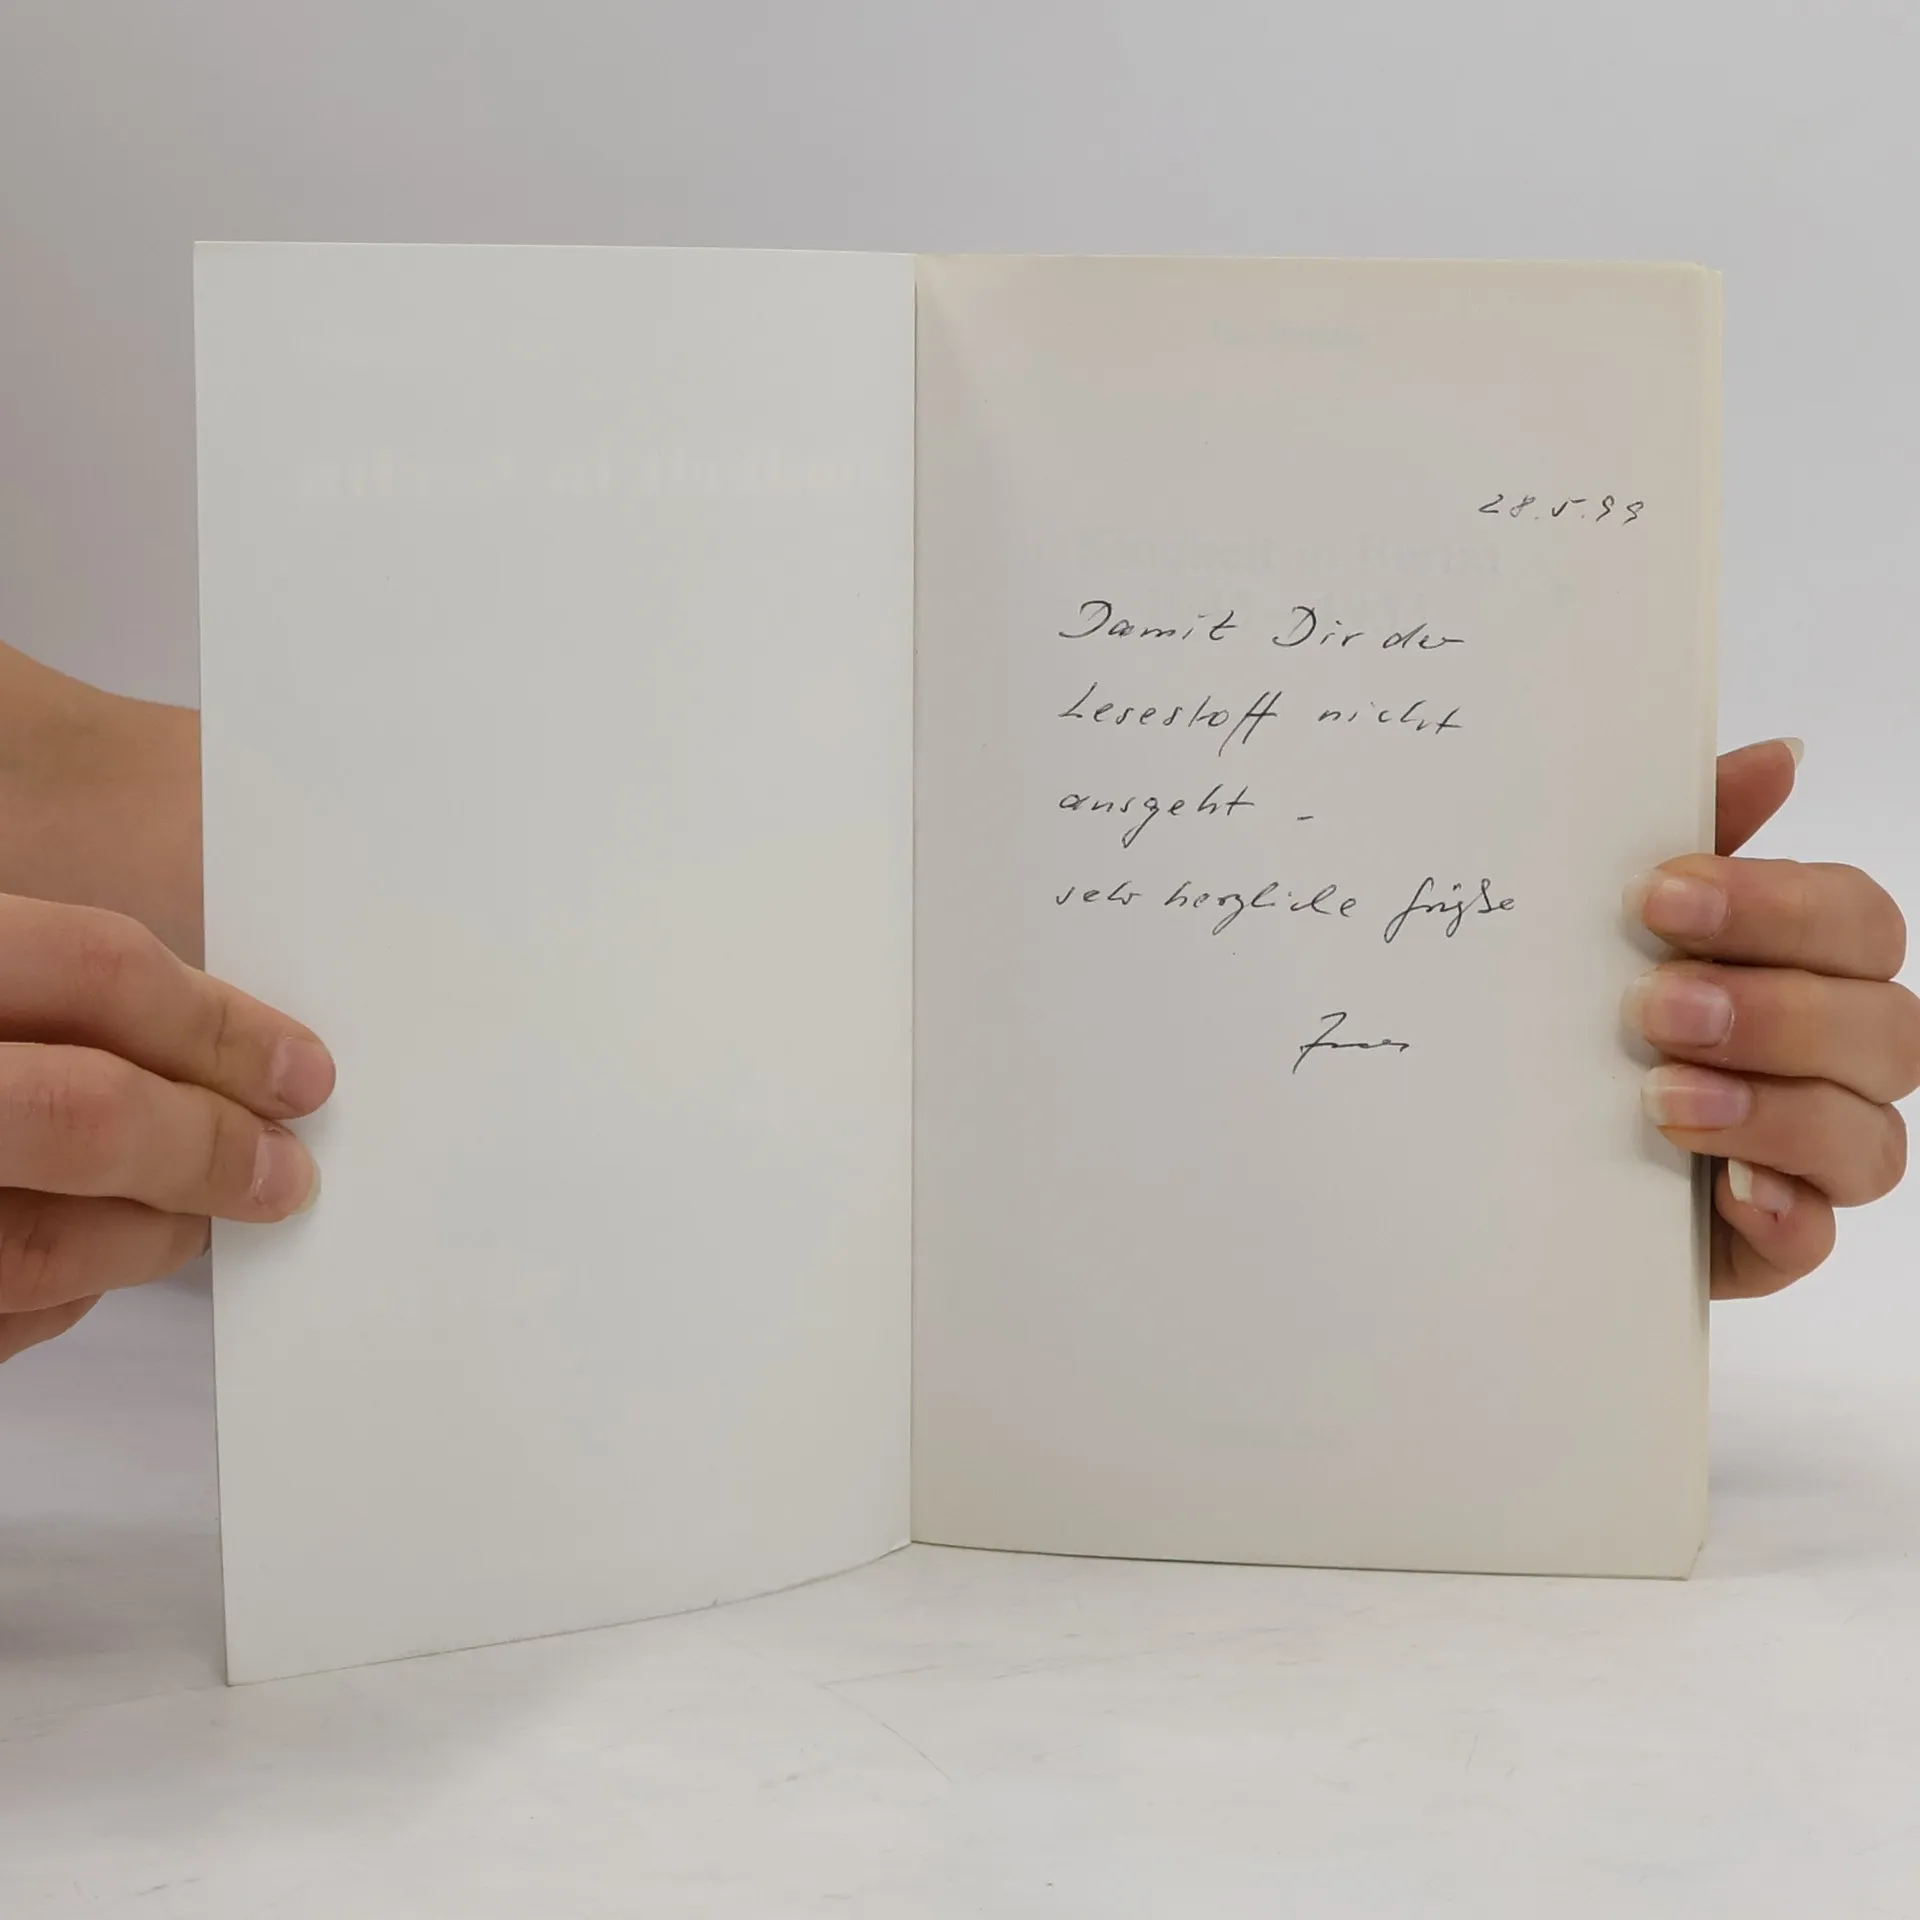 28.5.99
Damit Dir der
Lesestoff nicht
ausgeht –
sehr herzliche Grüße